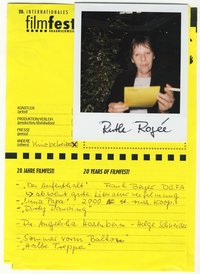 20. INTERNATIONALES
filmfest
BRAUNSCHWEIG
KÜNSTLER
(artist)
PRODUKTION/VERLEIH
(production/distribution)
PRESSE
(press)
ANDERE
(other)
Ruthe Rogée
20 JAHRE FILMFEST! 20 YEARS OF FILMFEST!
- "Der Aufenthalt" Frank Beyer DEFA
absolut gute Literaturverfilmung
- "Una Papa" 2000
- Dirty Dancing
- Dr. Angelika Hasenbein - Helge Schneider
- Sommer vorm Balkon
- Halbe Treppe